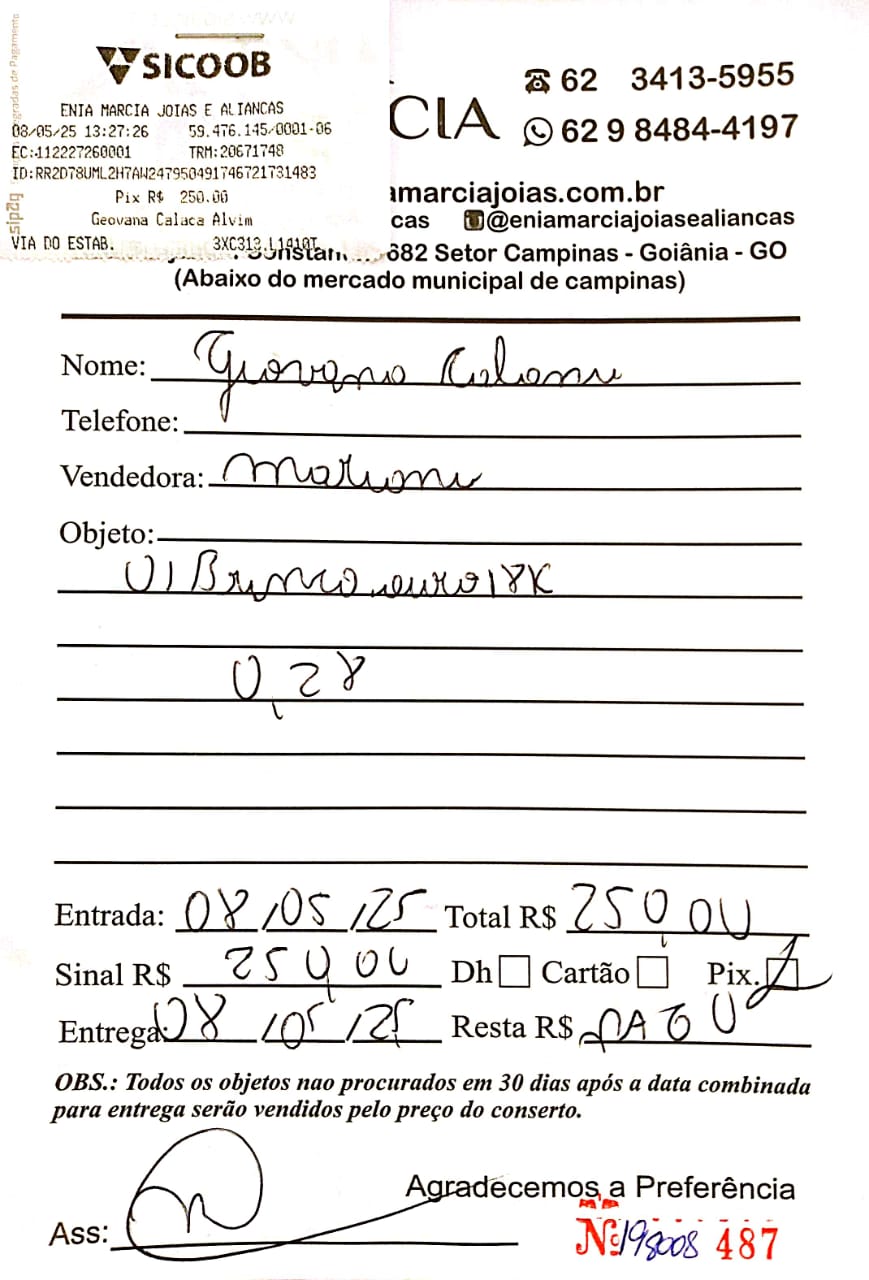 SICOOB
ENIA MARCIA JOIAS E ALIANCAS
08/05/25 13:27:26 59.476.145/0001-06
EC:112227260001 TRM:20671748
ID:RR2D78UML2H7AW247950491746721731483
Pix R$ 250.00
Geovana Calaca Alvim
VIA DO ESTAB. 3XC313.L1410T
sipag
CIA
62 3413-5955
62 9 8484-4197
amarciajoias.com.br
cas @eniamarciajoiasealiancas
682 Setor Campinas - Goiânia - GO
(Abaixo do mercado municipal de campinas)
Nome: Geovana
Telefone:
Vendedora:
Objeto:
01 Brinco ouro 18K
0,28
Entrada: 08/05/25 Total R$ 250,00
Sinal R$ 250,00 Dh Cartão Pix.
Entrega: 08/05/25 Resta R$ PAGO
OBS.: Todos os objetos nao procurados em 30 dias após a data combinada
para entrega serão vendidos pelo preço do conserto.
Agradecemos a Preferência
Ass:
Nº 198008 487